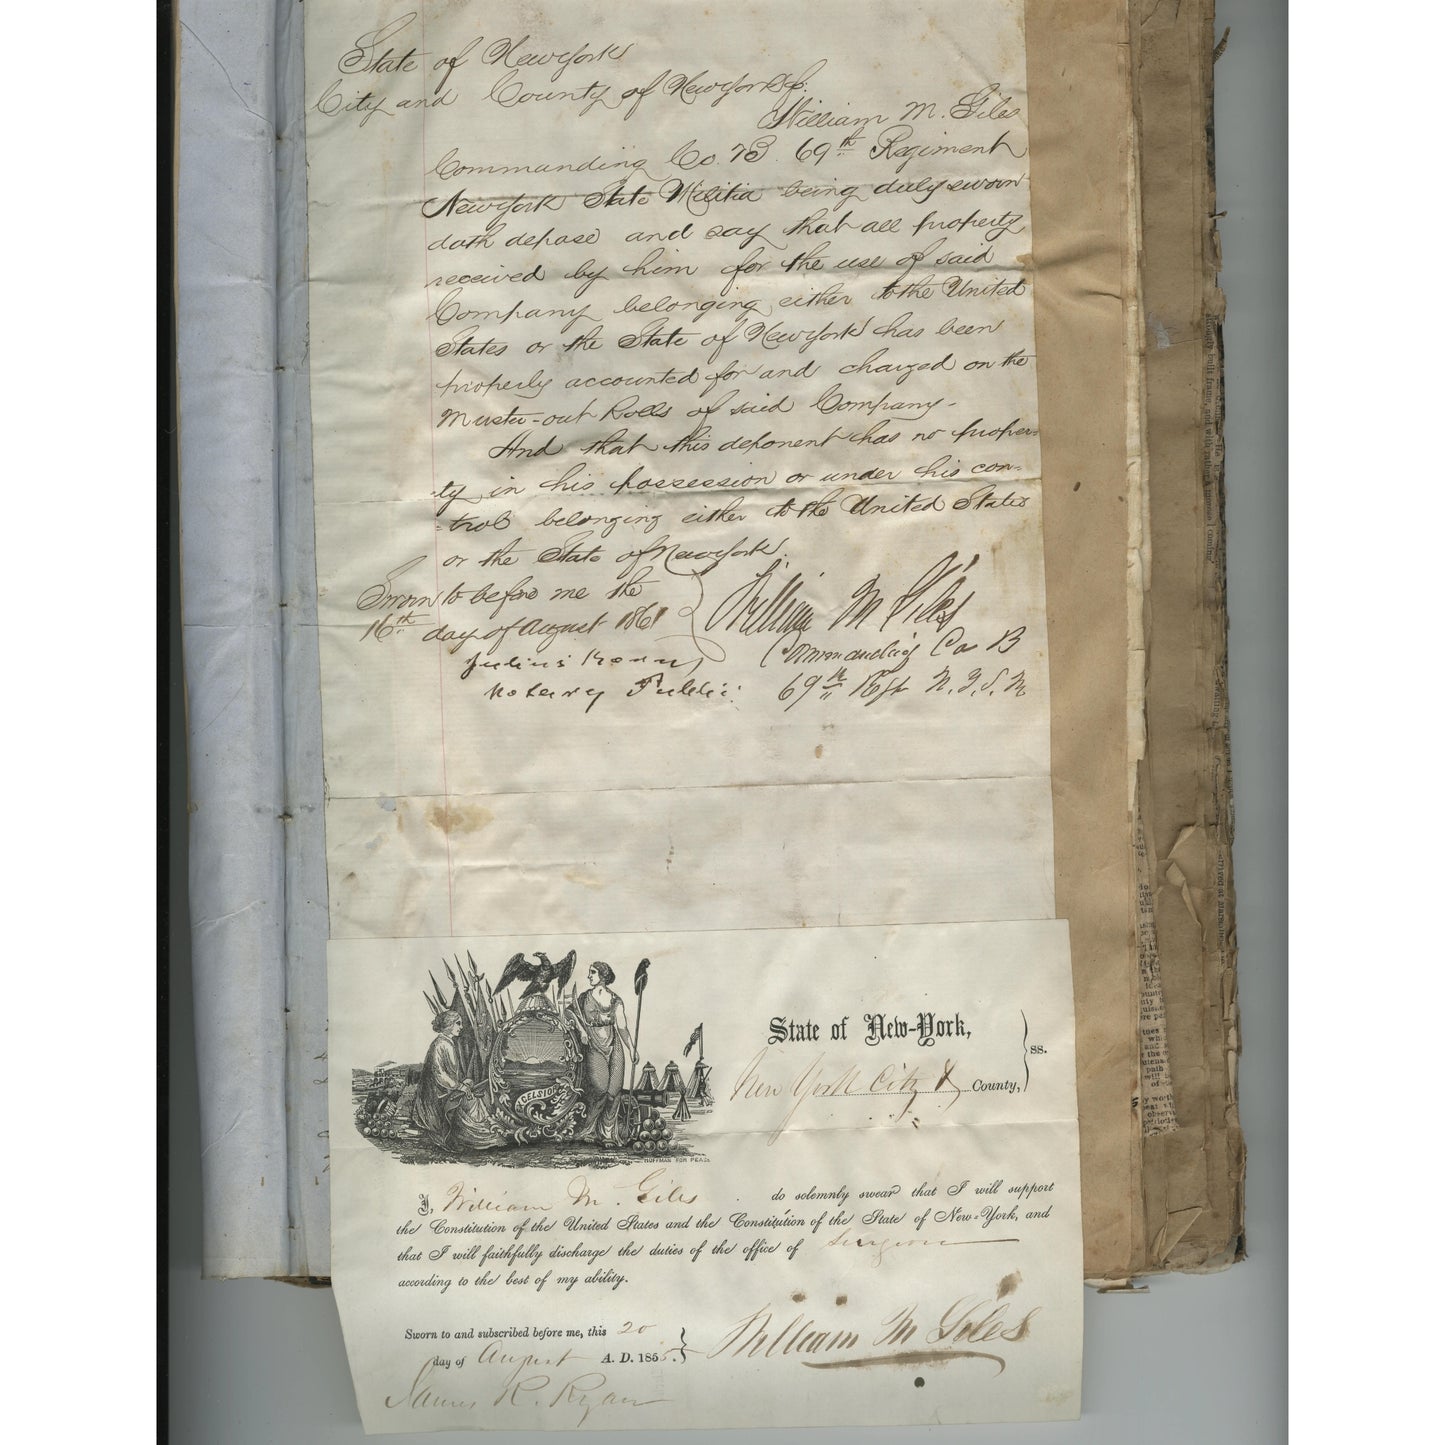 State of Newyork
City and County of Newyork
William M. Giles
Commanding Co. B. 69th Regiment
Newyork State Militia being duly sworn
doth depose and say that all property
received by him for the use of said
Company belonging either to the United
States or the State of Newyork has been
properly accounted for and charged on the
Muster-out Rolls of said Company-
And that this deponent has no proper-
ty in his possession or under his con-
-trol belonging either to the United States
or the State of Newyork.
Sworn to before me the
16th day of August 1861
Julius
Notary Public
William M Giles
Commanding Co B
69th Regt N.Y.S.M
EXCELSIOR
HOFFMAN FOR PEASE
State of New-York,
New York City & County, } ss.
I, William M. Giles do solemnly swear that I will support
the Constitution of the United States and the Constitution of the State of New-York, and
that I will faithfully discharge the duties of the office of Surgeon
according to the best of my ability.
Sworn to and subscribed before me, this 20
day of August A. D. 1855.
William M Giles
James R. Ryan